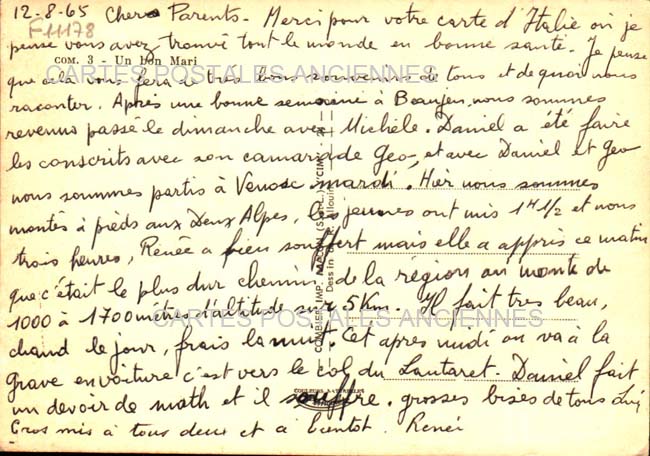 12-8-65 Chers Parents - Merci pour votre carte d'Italie où je
F11178
pense vous avez trouvé tout le monde en bonne santé. Je pense
COM. 3 - Un Bon Mari
que cela vous fera de très bons souvenirs de tous et de quoi nous
CARTES POSTALES ANCIENNES
raconter. Après une bonne semaine à Beaujeu nous sommes
revenus passé le dimanche avec Michèle. Daniel a été faire
les conscrits avec son camarade Geo, et avec Daniel et Geo
nous sommes partis à Venosc mardi. Hier nous sommes
montés à pieds aux Deux Alpes, les jeunes ont mis 1H1/2 et nous
trois heures, Renée a bien souffert mais elle a appris ce matin
que c'était le plus dur chemin de la région on monte de
1000 à 1700 mètres d'altitude sur 5 Km. Il fait très beau,
CARTES POSTALES ANCIENNES
chaud le jour, frais la nuit. Cet après midi on va à la
grave en voiture c'est vers le col du Lautaret. Daniel fait
un devoir de math et il souffre. grosses bises de tous
Gros mis à tous deux et à bientôt. René
COMBIER IMP. MACON
Dessin